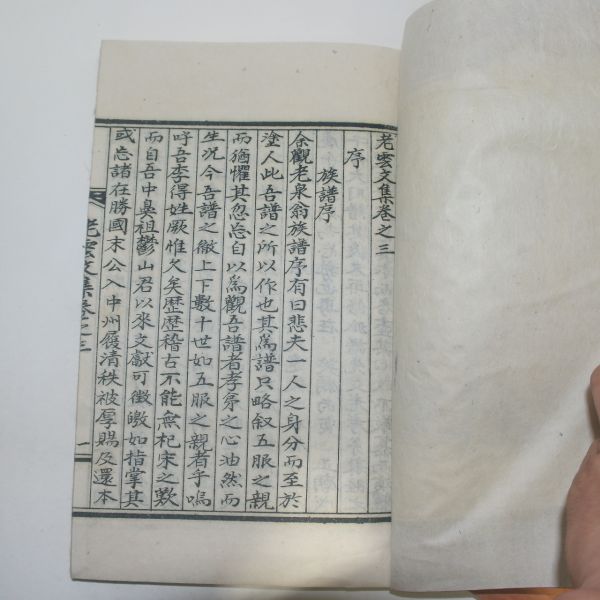 老雲文集卷之三
序
族譜序
余觀老泉翁族譜序有曰悲夫一人之身分而至於
塗人此吾譜之所以作也其爲譜只略叙五服之親
而猶懼其忽忘自以爲觀吾譜者孝弟之心油然而
生況今吾譜之徹上下數十世如五服之親者乎嗚
呼吾李得姓厥惟久矣歷歷稽古不能無杞宋之歎
而自吾中鼻祖鬱山君以來文獻可徵皦如指掌其
或忘諸在勝國末公入中州履清秩被厚賜及還本
老雲文集卷之三
一